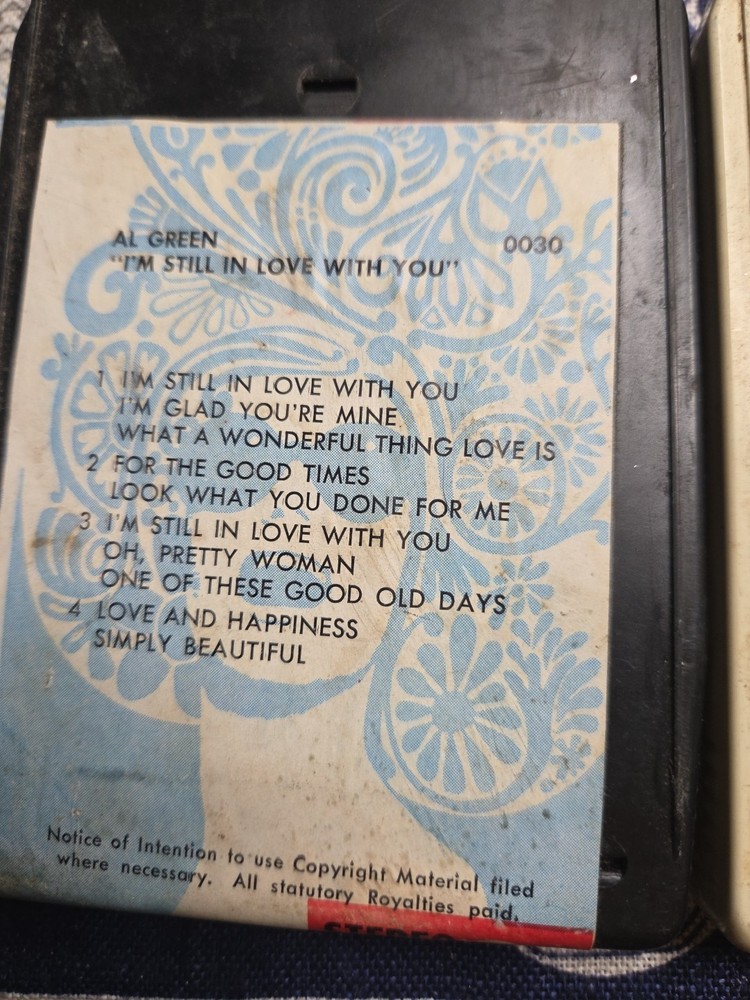 AL GREEN 0030
"I'M STILL IN LOVE WITH YOU"
1 I'M STILL IN LOVE WITH YOU
I'M GLAD YOU'RE MINE
WHAT A WONDERFUL THING LOVE IS
2 FOR THE GOOD TIMES
LOOK WHAT YOU DONE FOR ME
3 I'M STILL IN LOVE WITH YOU
OH, PRETTY WOMAN
ONE OF THESE GOOD OLD DAYS
4 LOVE AND HAPPINESS
SIMPLY BEAUTIFUL
Notice of Intention to use Copyright Material filed
where necessary. All statutory Royalties paid.
STEREO